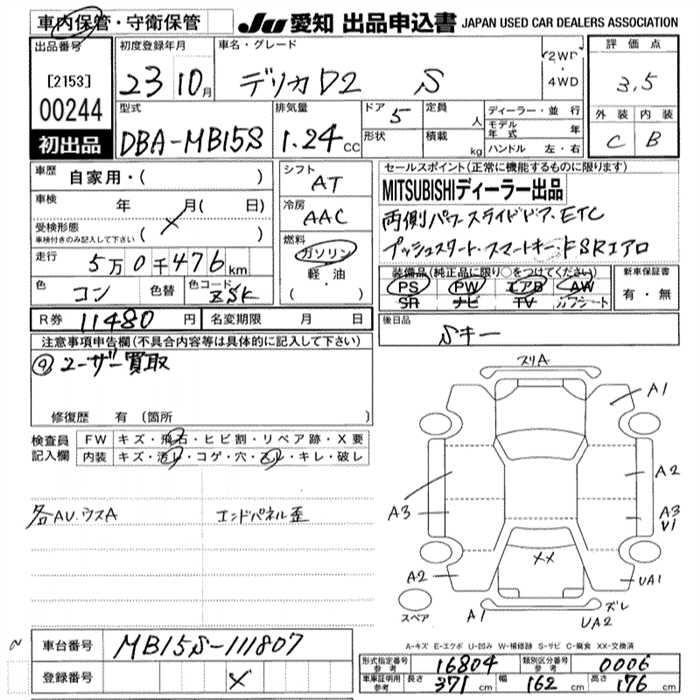 車内保管・守衛保管
Ju 愛知 出品申込書 JAPAN USED CAR DEALERS ASSOCIATION
出品番号
[2153]
00244
初出品
初度登録年月
23 10月
車名・グレード
デリカD2 S
2WD・4WD
評価点
3.5
外装 内装
C B
型式
DBA-MB15S
排気量
1.24 CC
ドア
5
形状
定員
人
積載
kg
ディーラー・並 行
モデル年式 年
ハンドル 左・右
車歴 自家用・( )
車検 年 月( 日)
受検形態
車検付きのみ記入して下さい ( )
走行 5万0千476km
色 コン 色替 色コード ZSK
シフト
AT
冷房
AAC
燃料
ガソリン
軽 油
・( )
セールスポイント(正常に機能するものに限ります)
MITSUBISHIディーラー出品
両側パワースライドドア・ETC
プッシュスタート・スマートキー・FSRエアロ
装備品(純正品に限り○をつけてください)
PS PW エアB AW
SR ナビ TV カワシート
新車保証書
有・無
R券 11480円 名変期限 月 日
後日品
Sキー
注意事項申告欄(不具合内容等は具体的に記入して下さい)
⑨ユーザー買取
修復歴 有(箇所
検査員記入欄
FW キズ・飛石・ヒビ割・リペア跡・X要
内装 キズ・汚レ・コゲ・穴・スレ・キレ・破レ
各AU.ウスA エンドパネル歪
スリA
A1
A2
A3
A3
V1
XX
A2
UA1
A1
ズレ
UA2
スペア
A-キズ E-エクボ U-凹み W-補修跡 S-サビ C-腐食 XX-交換済
車台番号 MB15S-111807
登録番号
型式指定番号 参考 16804 類別区分番号 参考 0006
車庫証明用 参考 長さ 371cm 幅 162cm 高さ 176cm